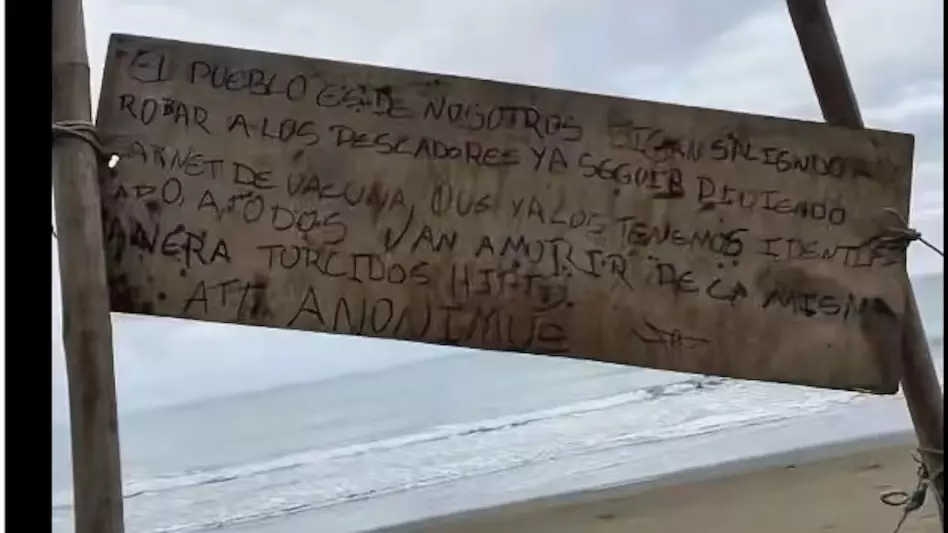 "EL PUEBLO ES DE NOSOTROS SIGAN SALIENDO A
ROBAR A LOS PESCADORES YA SEGUIR PIDIENDO
CARNET DE VACUNA, QUE YA LOS TENEMOS IDENTIFI
CADO, A TODOS VAN AMORIR DE LA MISMA
MANERA TORCIDOS
ATT. ANONIMUS